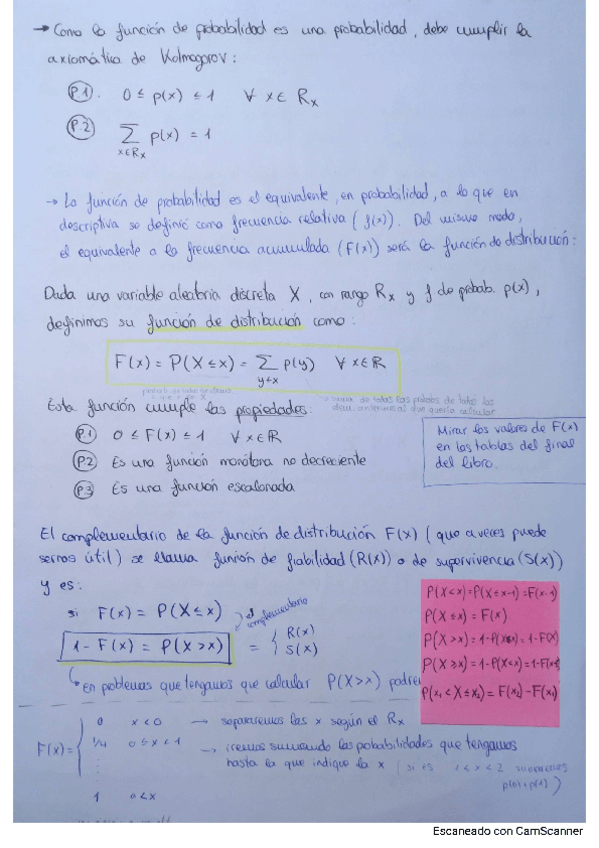 → Como la función de probabilidad es una probabilidad, debe cumplir la
axiomática de Kolmogorov:
P.1. 0 ≤ p(x) ≤ 1 ∀ x∈ Rx
P.2 ∑ p(x) = 1
x∈Rx
→ La función de probabilidad es el equivalente, en probabilidad, a lo que en
descriptiva se definió como frecuencia relativa (f(x)). Del mismo modo,
el equivalente a la frecuencia acumulada (F(x)) será la función de distribución:
Dada una variable aleatoria discreta X, con rango Rx y f de probab. p(x),
definimos su función de distribución como:
F(x) = P(X ≤ x) = ∑ p(y) ∀ x∈ℝ
y≤x
suma de todas las probabs. de todos los
Esta función cumple las propiedades:
P.1 0 ≤ F(x) ≤ 1 ∀ x∈ℝ
P.2 Es una función monótona no decreciente
P.3 Es una función escalonada
Mirar los valores de F(x)
en las tablas del final
del libro.
El complementario de la función de distribución F(x) (que a veces puede
sernos útil) se llama función de fiabilidad (R(x)) o de supervivencia (S(x))
y es:
si F(x) = P(X ≤ x)
el
complementario
1 - F(x) = P(X > x) = { R(x)
S(x)
P(X<x)=P(X≤x-1)=F(x-1)
P(X≤x)=F(x)
P(X>x)=1-P(X≤x)=1-F(x)
P(X≥x)=1-P(X<x)=1-F(x-1
P(x₁<X≤x₂)=F(x₂)-F(x₁)
En problemas que tengamos que calcular P(X>x)
F(x)= { 0 x<0 → separaremos las x según el Rx
1/4 0≤x<1 → iremos sumando las probabilidades que tengamos
hasta la que indique la x (si es 1<x<2 sumaremos
p(0)+p(1))
1 0<x
Escaneado con CamScanner